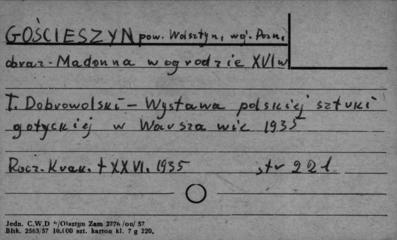 GOŚCIESZYN pow. Wolsztyn, woj. Pozn.
obraz - Madonna w ogrodzie XVI w
T. Dobrowolski - Wystawa polskiej sztuki
gotyckiej w Warszawie 1935
Rocz. Krak. t XXVI. 1935 str 221
Jedn. C.W.D /Olsztyn Zam 2776 /on/ 57
Blhk. 2563/57 10.100 szt. karton kl. 7 g 220.